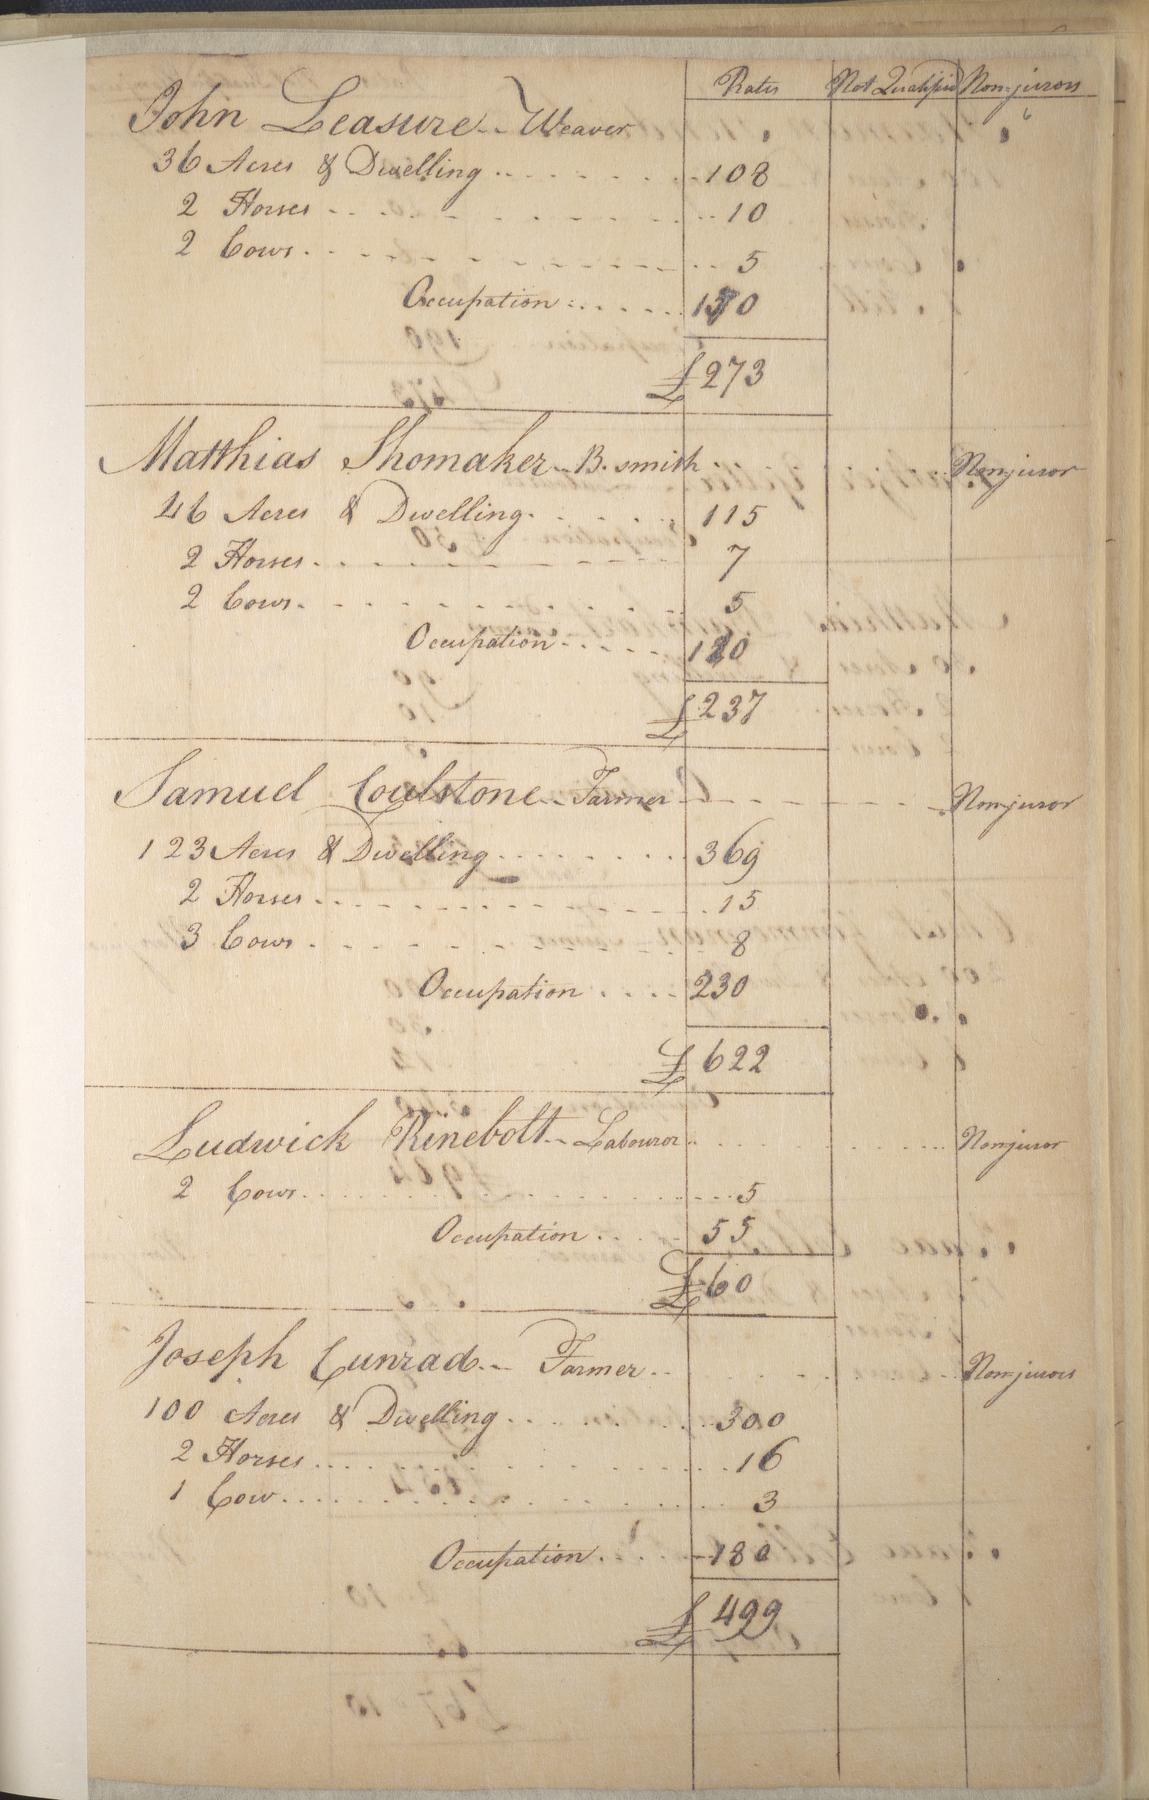 Rates Not Qualified Nonjurors
John Leasure -- Weaver
36 Acres & Dwelling 108
2 Horses 10
2 Cows 5
Occupation 150
£273
Matthias Shomaker -- B. smith Nonjuror
46 Acres & Dwelling 115
2 Horses 7
2 Cows 5
Occupation 110
£237
Samuel Coulstone -- Farmer Nonjuror
123 Acres & Dwelling 369
2 Horses 15
3 Cows 8
Occupation 230
£622
Ludwick Rinebolt -- Labouror Nonjuror
2 Cows 5
Occupation 55
£60
Joseph Cunrad -- Farmer Nonjurors
100 Acres & Dwelling 300
2 Horses 16
1 Cow 3
Occupation 180
£499